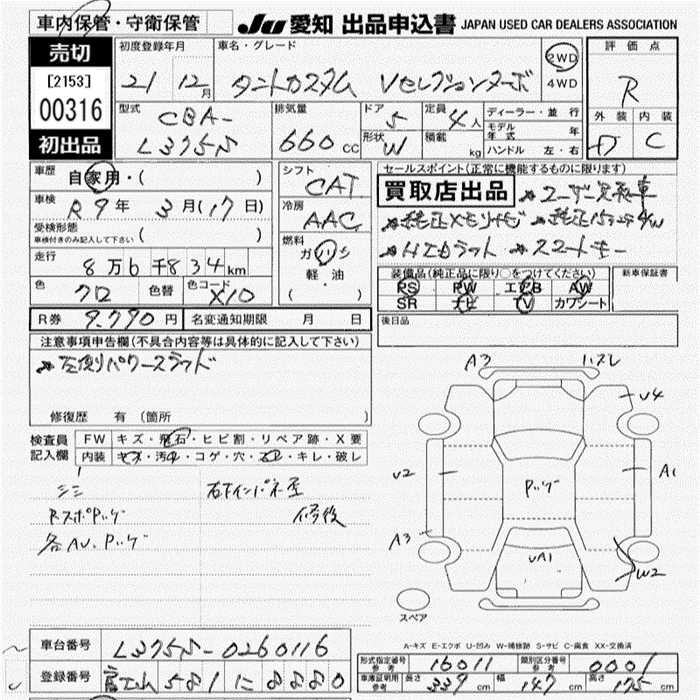 車内保管・守衛保管 JU 愛知 出品申込書 JAPAN USED CAR DEALERS ASSOCIATION
売切
[2153]
00316
初出品
初度登録年月 車名・グレード 2WD 4WD 評価点
21 12月 タントカスタム Vセレクションターボ R
型式 CBA- L375S 排気量 660 cc ドア 5 形状 W 定員 4人 積載 kg
ディーラー・並行
モデル年式 年
ハンドル 左・右
外装 内装
D C
車歴 自家用・( )
車検 R9年 3月(17日)
受検形態 ( )
車検付きのみ記入して下さい
走行 8万6千834km
色 クロ 色替 色コード X10
R券 9,790円 名変通知期限 月 日
シフト CAT
冷房 AAC
燃料 ガソリン
軽油
( ・ )
セールスポイント(正常に機能するものに限ります)
買取店出品 ユーザー買取車
純正メモリナビ 純正15インチA/W
HIDライト スマートキー
装備品(純正品に限り○をつけてください) 新車保証書
PS PW エアB AW
SR ナビ TV カワシート
後日品
注意事項申告欄(不具合内容等は具体的に記入して下さい)
左側パワースライド
修復歴 有 (箇所
検査員記入欄
FW キズ・飛石・ヒビ割・リペア跡・X要
内装 キズ・汚れ・コゲ・穴・ズレ・キレ・破レ
シミ 右下インパネ歪
RスポPッゲ 修後
各AU、Pッゲ
A3 ハズレ
U4
U2 Pッゲ A1
A3 UA1
W2
スペア
A-キズ E-エクボ U-凹み W-補修跡 S-サビ C-腐食 XX-交換済
車台番号 L375S-0260116
登録番号 富山 581 に 8880
形式指定番号 参考 16011 類別区分番号 参考 0001
車庫証明用 参考 長さ 339 cm 幅 147 cm 高さ 175 cm